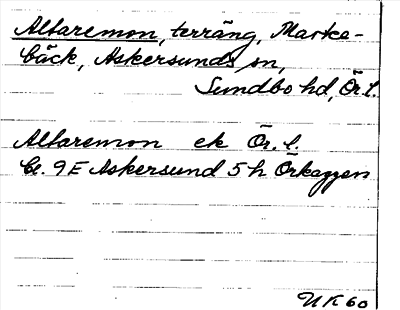 Altaremon, terräng, Marke-
bäck, Askersunds sn,
Sundbo hd, Ör. l.
Altaremon ek Ör. l.
Bl. 9E Askersund 5h Örkaggen
NK 60